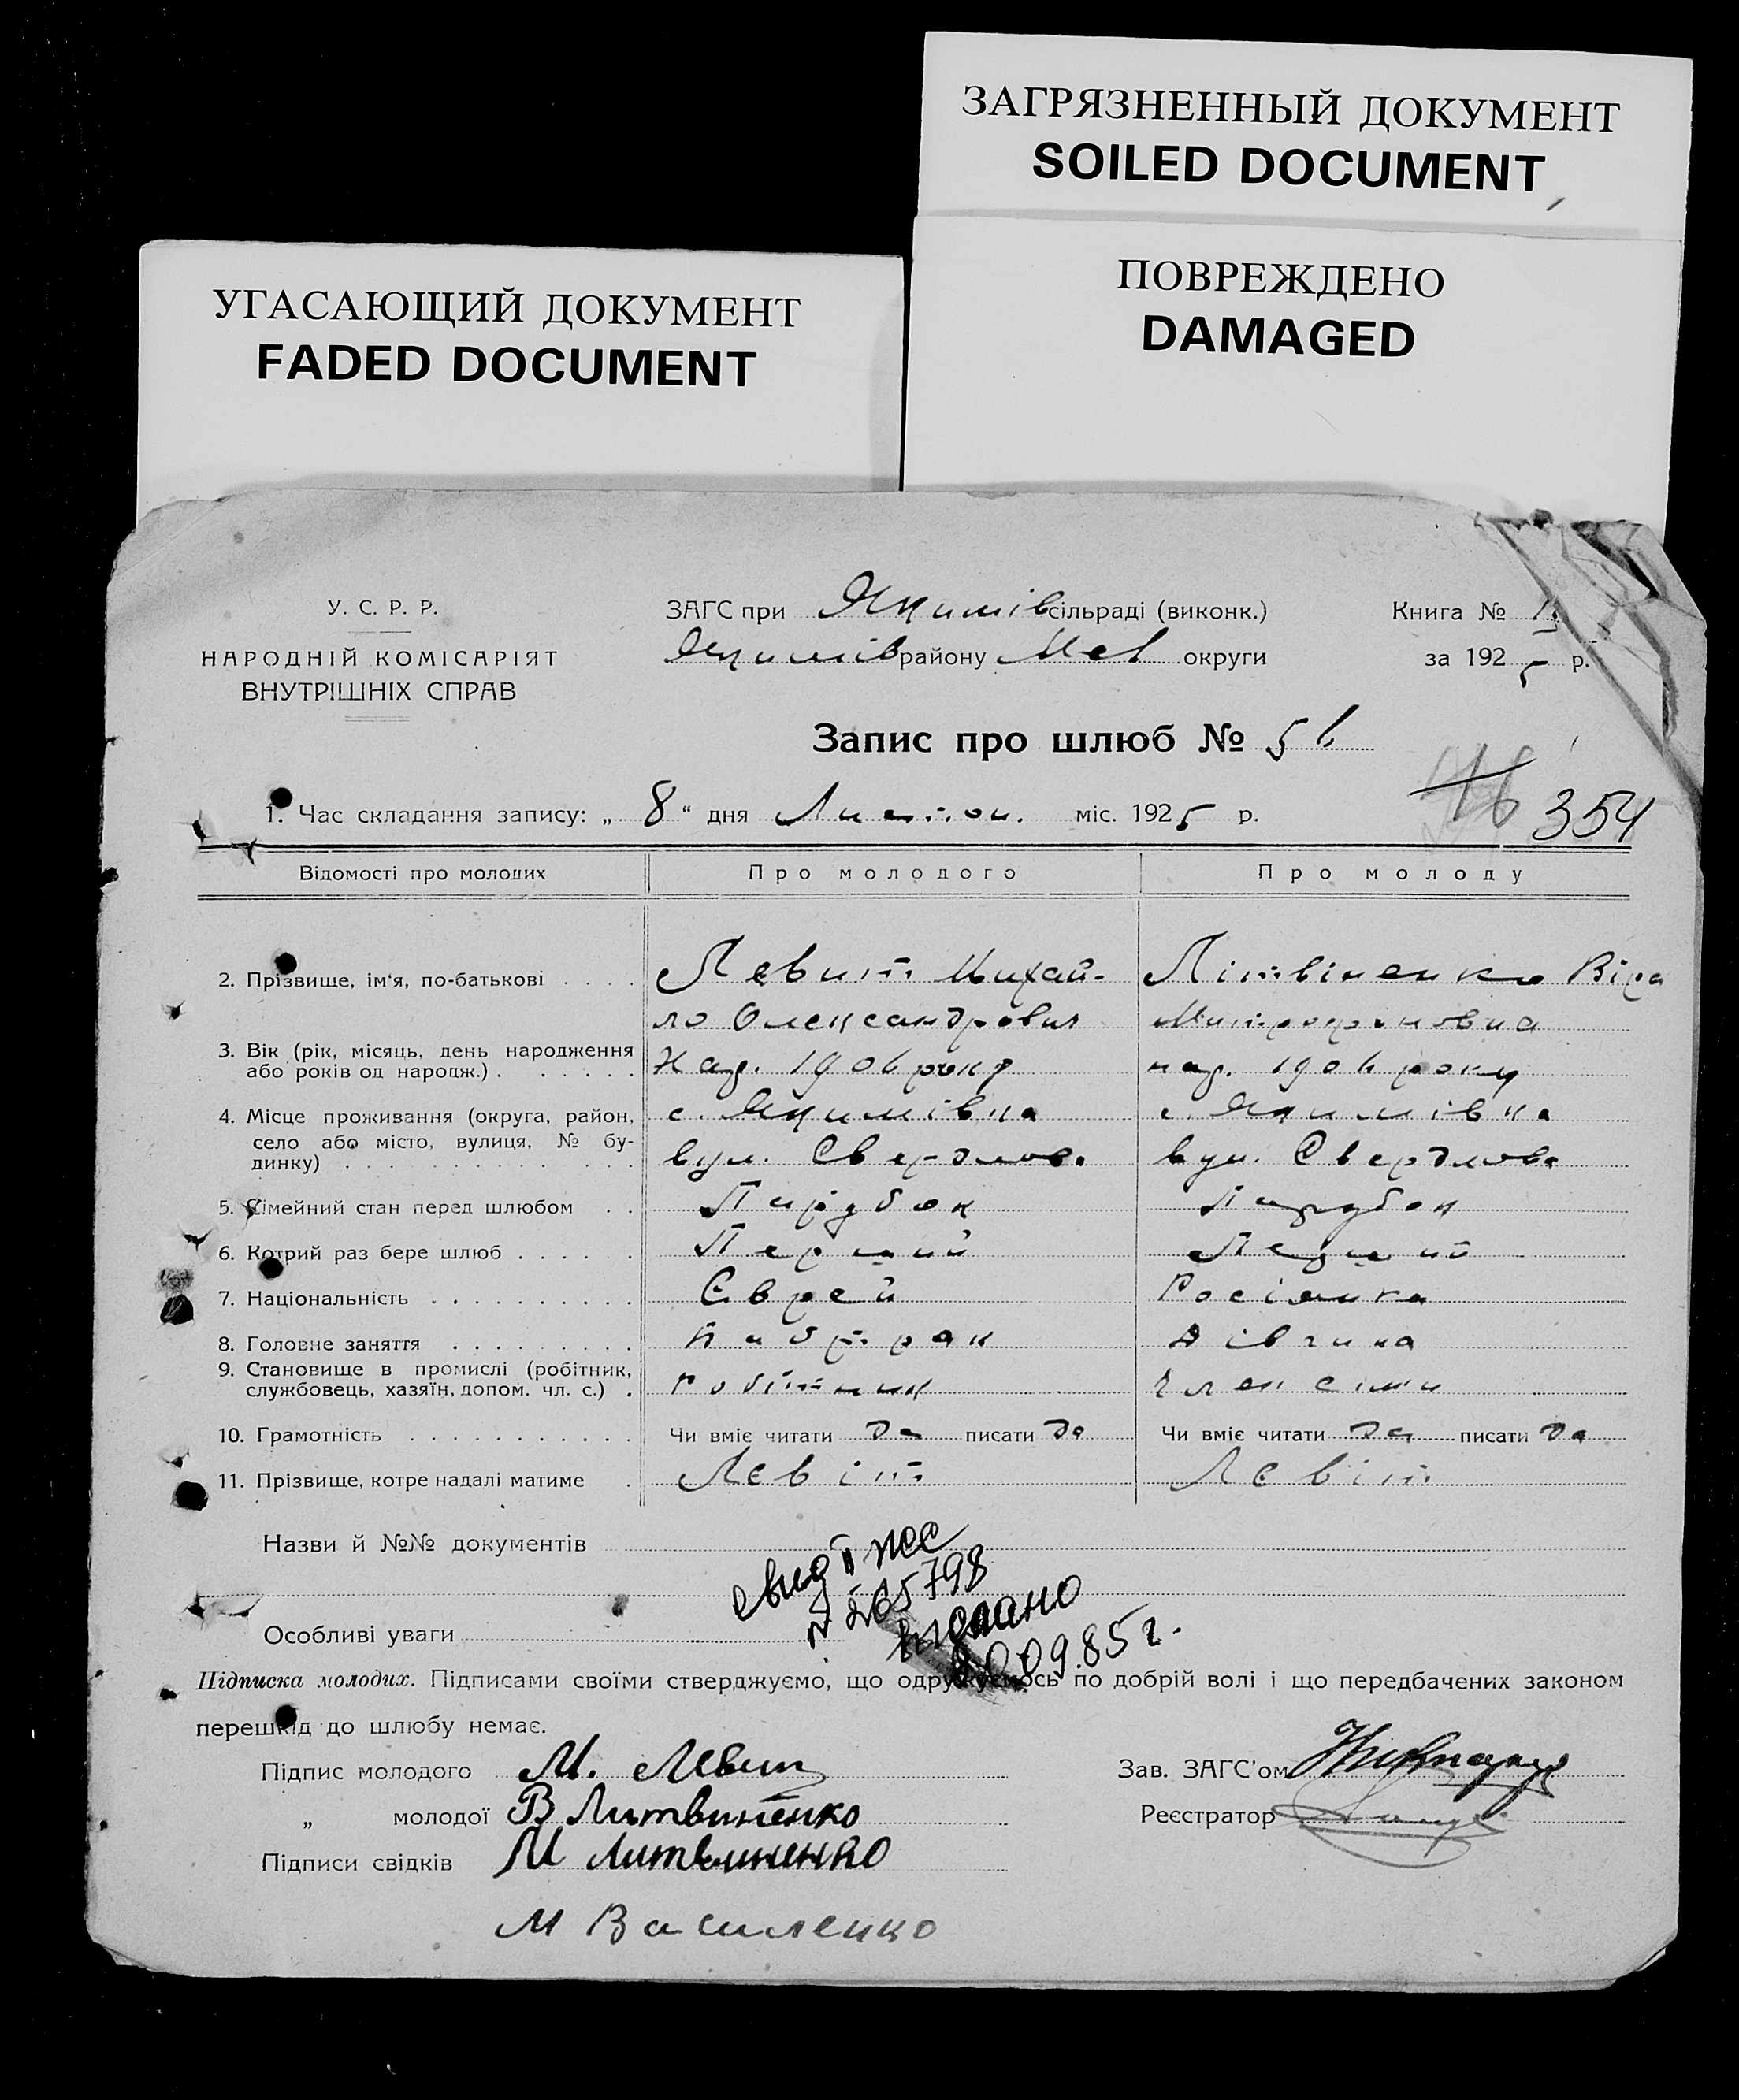 ЗАГРЯЗНЕННЫЙ ДОКУМЕНТ
SOILED DOCUMENT
УГАСАЮЩИЙ ДОКУМЕНТ
FADED DOCUMENT
ПОВРЕЖДЕНО
DAMAGED
У. С. Р. Р.
НАРОДНІЙ КОМІСАРІЯТ
ВНУТРІШНІХ СПРАВ
ЗАГС при Якимів сільраді (виконк.)
Якимів району Мел округи
Книга №
за 1925 р.
Запис про шлюб №
1. Час складання запису: „ 8 “ дня міс. 1925 р.
354
Відомості про молодих Про молодого Про молоду
2. Прізвище, ім'я, по-батькові . . . . Левит Михай- Літвіненко Віра
ло Олександрович Митрофановна
3. Вік (рік, місяць, день народження
або років од народж.) . . . . . . Нар. 1906 року нар. 1906 року
4. Місце проживання (округа, район, с. Якимівка с. Якимівка
село або місто, вулиця, № бу-
динку) . . . . . . . . . . . . . вул. Свердлова вул. Свердлова
5. Сімейний стан перед шлюбом . . Парубок Парубок
6. Котрий раз бере шлюб . . . . . . Перший Перший
7. Національність . . . . . . . . . . Єврей Росіянка
8. Головне заняття . . . . . . . . . Дівчина
9. Становище в промислі (робітник,
службовець, хазяїн, допом. чл. с.) . Робітник Член сімї
10. Грамотність . . . . . . . . . . . Чи вміє читати да писати да Чи вміє читати да писати да
11. Прізвище, котре надалі матиме . Левіт Левіт
Назви й №№ документів
свид II жсс
№ 265798
выслано
20.09.85г.
Особливі уваги
Підписка молодих. Підписами своїми стверджуємо, що одружуємось по добрій волі і що передбачених законом
перешкід до шлюбу немає.
Підпис молодого М. Левит
Зав. ЗАГС'ом
„ молодої В Литвиненко
Реєстратор
Підписи свідків М Литвиненко
М Василенко